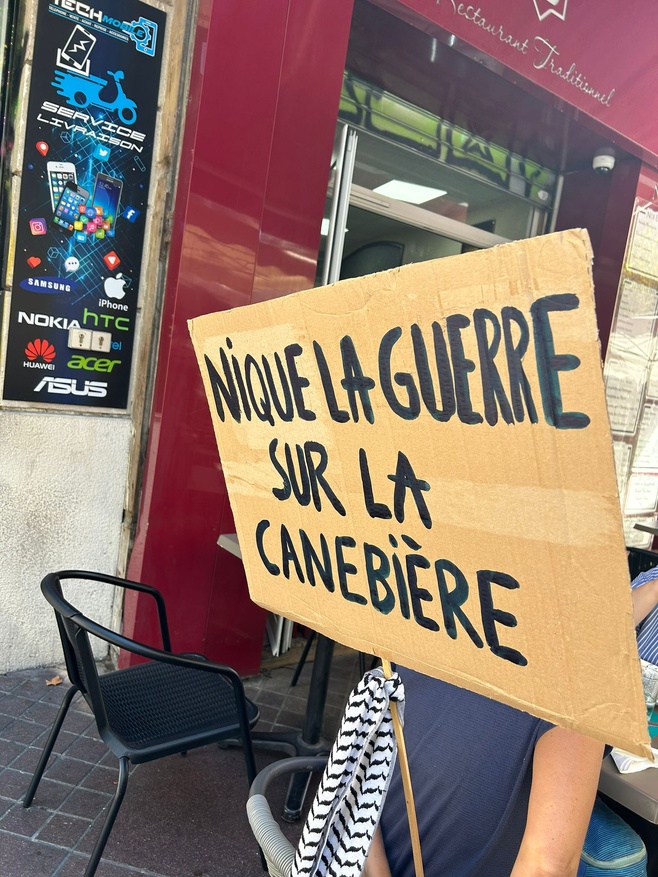 TECHMOBILE
SERVICE
LIVRAISON
SAMSUNG
iPhone
NOKIA
hTC
HUAWEI
acer
ASUS
Restaurant Traditionnel
NIQUE LA GUERRE
SUR LA
CANEBIÈRE